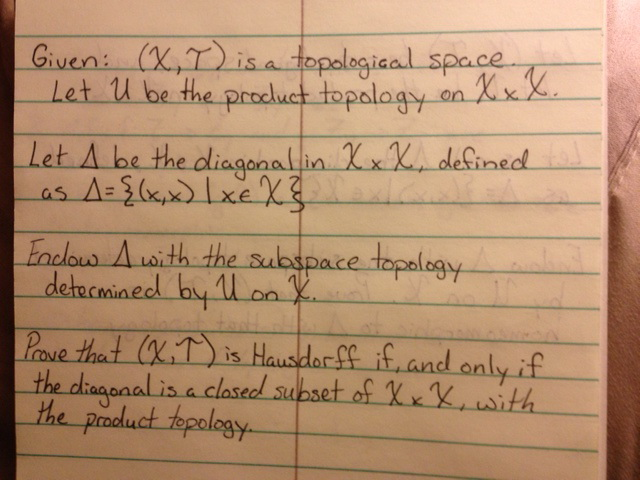 Given: (X,T) is a topological space.
Let U be the product topology on X x X.
Let Δ be the diagonal in X x X, defined
as Δ={(x,x) | x∈X}
Endow Δ with the subspace topology
determined by U on X.
Prove that (X,T) is Hausdorff if, and only if
the diagonal is a closed subset of X x X, with
the product topology.